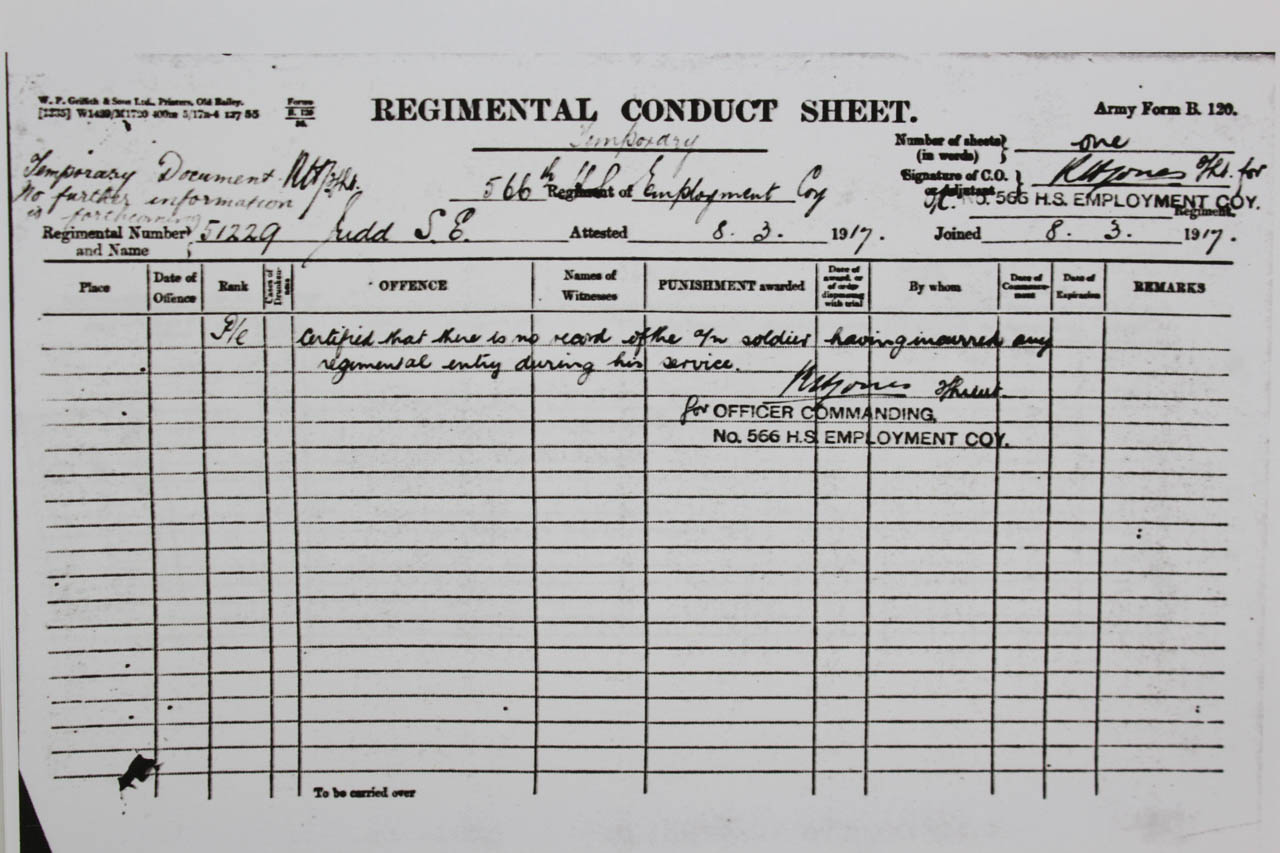 W. P. Griffith & Sons Ltd., Printers, Old Bailey.
[1235] W1489/M1720 400m 5/17 127 55
Forms
B. 120
REGIMENTAL CONDUCT SHEET.
Army Form B. 120.
Temporary
Number of sheets (in words) } one
Temporary Document
No further information
is forthcoming
Signature of C.O. or Adjutant } RHJones for
566th H.S. Regiment of Employment Coy
No. 566 H.S. EMPLOYMENT COY.
Regiment.
Regimental Number and Name } 51229 Judd S. E. Attested 8. 3. 1917. Joined 8. 3. 1917.
Place Date of Offence Rank Cases of Drunkenness OFFENCE Names of Witnesses PUNISHMENT awarded Date of award, or of order dispensing with trial By whom Date of Commencement Date of Expiration REMARKS
Pte Certified that there is no record of the a/n soldier having incurred any
regimental entry during his service.
RHJones
for OFFICER COMMANDING,
No. 566 H.S. EMPLOYMENT COY.
To be carried over